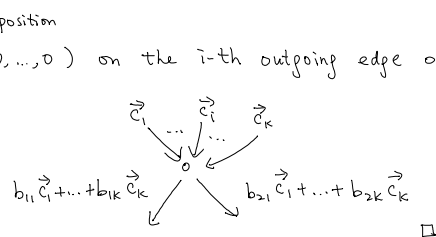 position
0, ..., 0 ) on the i-th outgoing edge o
c⃗₁ ... c⃗ᵢ ... c⃗ₖ
b₁₁ c⃗₁ + ... + b₁ₖ c⃗ₖ b₂₁ c⃗₁ + ... + b₂ₖ c⃗ₖ
□